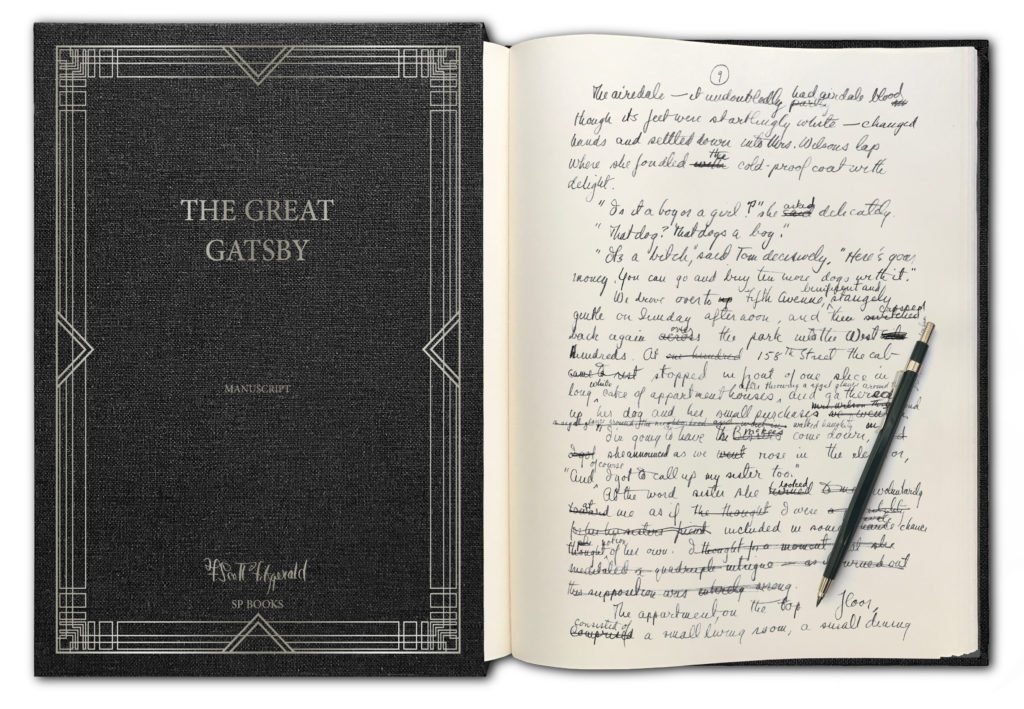 THE GREAT
GATSBY
MANUSCRIPT
F Scott Fitzgerald
SP BOOKS
9
The airedale — it undoubtedly had airdale blood
though its feet were startlingly white — changed
hands and settled down into Mrs. Wilsons lap
where she fondled the cold-proof coat with
delight.
"Is it a boy or a girl?" she asked delicatly.
"That dog? That dogs a boy."
"Its a bitch," said Tom decisively. "Here's your
money. You can go and buy ten more dogs with it."
benificent and
We drove over to fifth Avenue, strangely
quille on Sunday afternoon, and then
back again over across the park into the West
hundreds. At one hundred 158th Street the cab
came to rest stopped in front of one slice in
long white cake of appartment houses, and gathered
up her dog and her small purchases
"I'm going to have the come down,
she announced as we went rose in the
"And of course I got to call up my sister too."
At the word sister she looked voluntarily
at me as if the thought I were
included in some chance
of her own. I thought for a moment that she
meditated a quadruple intrigue — as it turned out
this supposition was entirely wrong.
The appartment, on the top floor,
consisted of comprised a small living room, a small dining